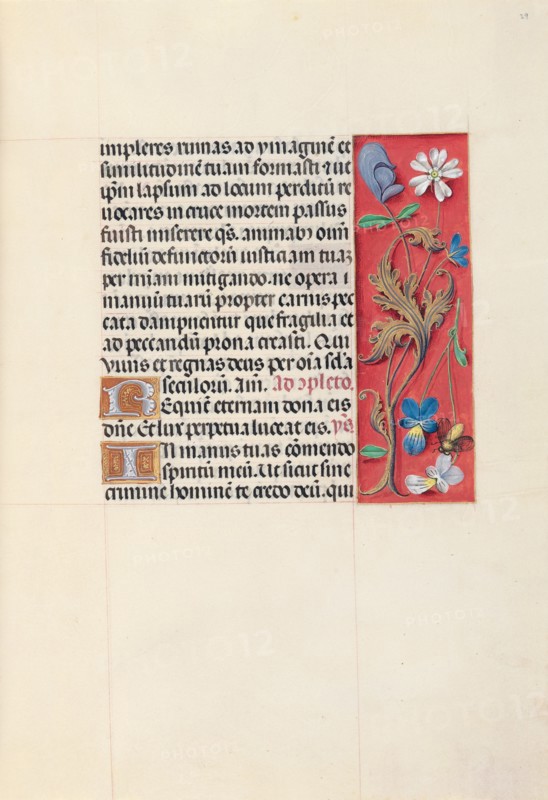 29
impleres ruinas ad ymaginē et
similitudinē tuam formasti ⁊ ue
ip̄m lapsum ad locum perditū re
uocares in cruce mortem passus
fuisti miserere q̄s. animabꝫ oīm
fidelīu defunctorū iusticiam tuaꝫ
per mīam mitigando. ne opera
manuū tuarū propter carnis pec
cata dampnentur que fragilia et
ad peccandū prona creasti. Qui
viuis et regnas deus per oīa sc̄la
seculorū. Am̄. Ad ↄpleto.
Requiē eternam dona eis
dn̄e Et lux perpetua luceat eis. p̄s
In manus tuas cōmendo
spiritū meū. Ut sicut sine
crimine hominē te credo deū. qui